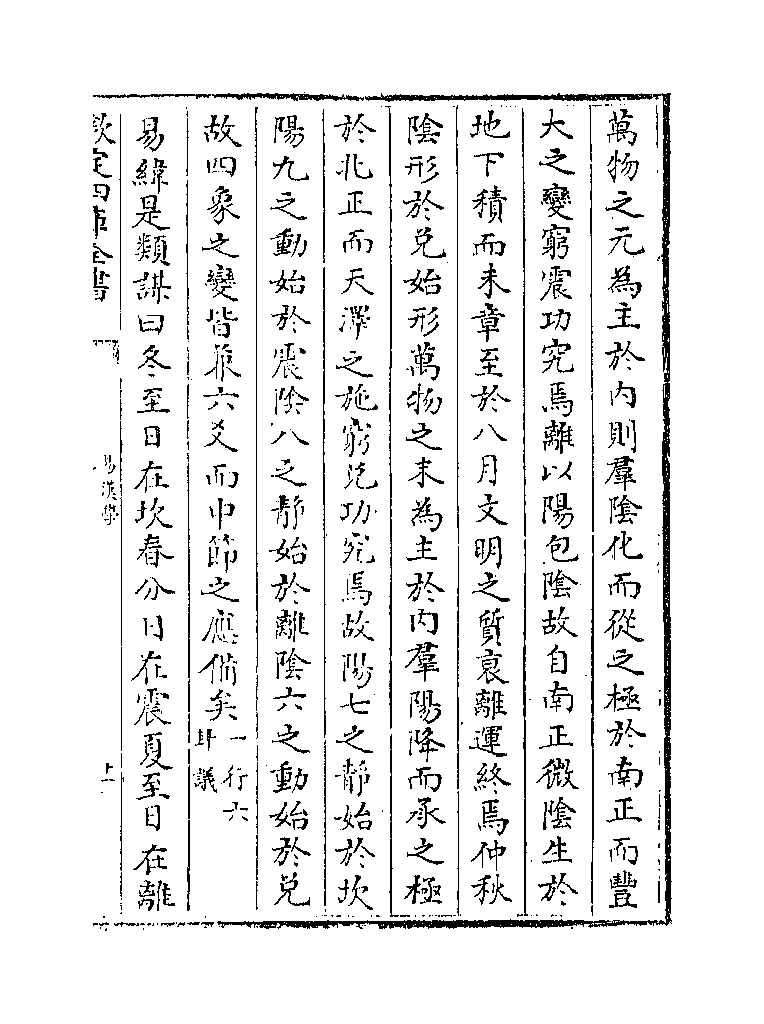 萬物之元為主於内則羣陰化而從之極於南正而豐
大之變窮震功究焉離以陽包陰故自南正微陰生於
地下積而未章至於八月文明之質衰離運終焉仲秋
陰形於兌始形萬物之末為主於内羣陽降而承之極
於北正而天澤之施窮兌功究焉故陽七之静始於坎
陽九之動始於震陰八之静始於離陰六之動始於兌
故四象之變皆兼六爻而中節之應備矣一行六
卦議
易緯是類謀曰冬至日在坎春分日在震夏至日在離
欽定四庫全書
易漢學